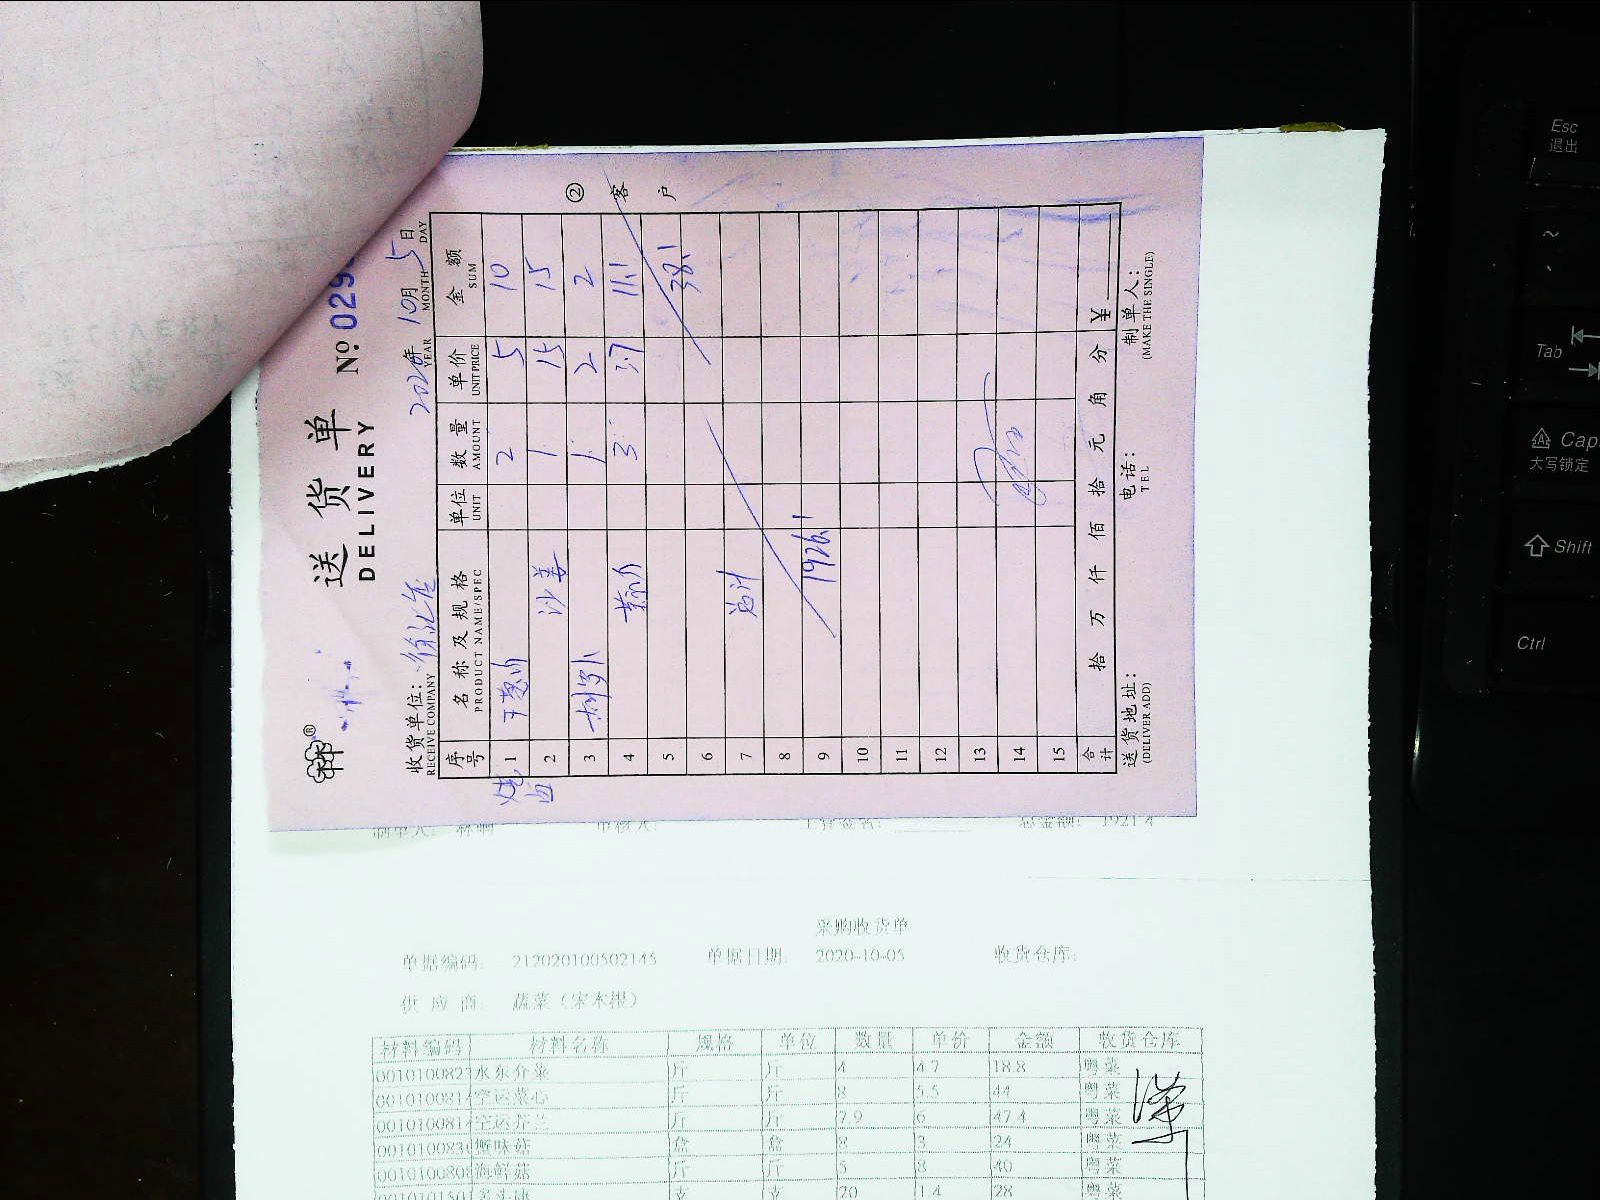 送货单
DELIVERY
№ 029
收货单位：徐汇店 2020年 10月5日
RECEIVE COMPANY YEAR MONTH DAY
序号 名称及规格 单位 数量 单价 金额
PRODUCT NAME/SPEC UNIT AMOUNT UNIT PRICE SUM
1 干葱肉 2 5 10
2 沙姜 1 15 15
3 1 2 2
4 3 3.7 11.1
5 38.1
6
7 总计
8
9 1926.1
10
11
12
13
14
15
合计 拾 万 仟 佰 拾 元 角 分 ¥
送货地址： 电话： 制单人：
(DELIVER ADD) TEL (MAKE THE SINGLE)
② 客户
烧卤
制单人： 审核人： 主管签名： 总金额： 1921.4
采购收货单
单据编码： 212020100502145 单据日期： 2020-10-05 收货仓库：
供应商： 蔬菜（宋木根）
材料编码 材料名称 规格 单位 数量 单价 金额 收货仓库
001010082 水东介菜 斤 斤 4 4.7 18.8 粤菜
001010081 空运菜心 斤 斤 8 5.5 44 粤菜
001010081 空运芥兰 斤 斤 7.9 6 47.4 粤菜
001010083 蟹味菇 盒 盒 8 3 24 粤菜
001010080 海鲜菇 斤 斤 5 8 40 粤菜
支 支 20 1.4 28 粤菜
Esc
退出
~
Tab
Cap
大写锁定
Shift
Ctrl